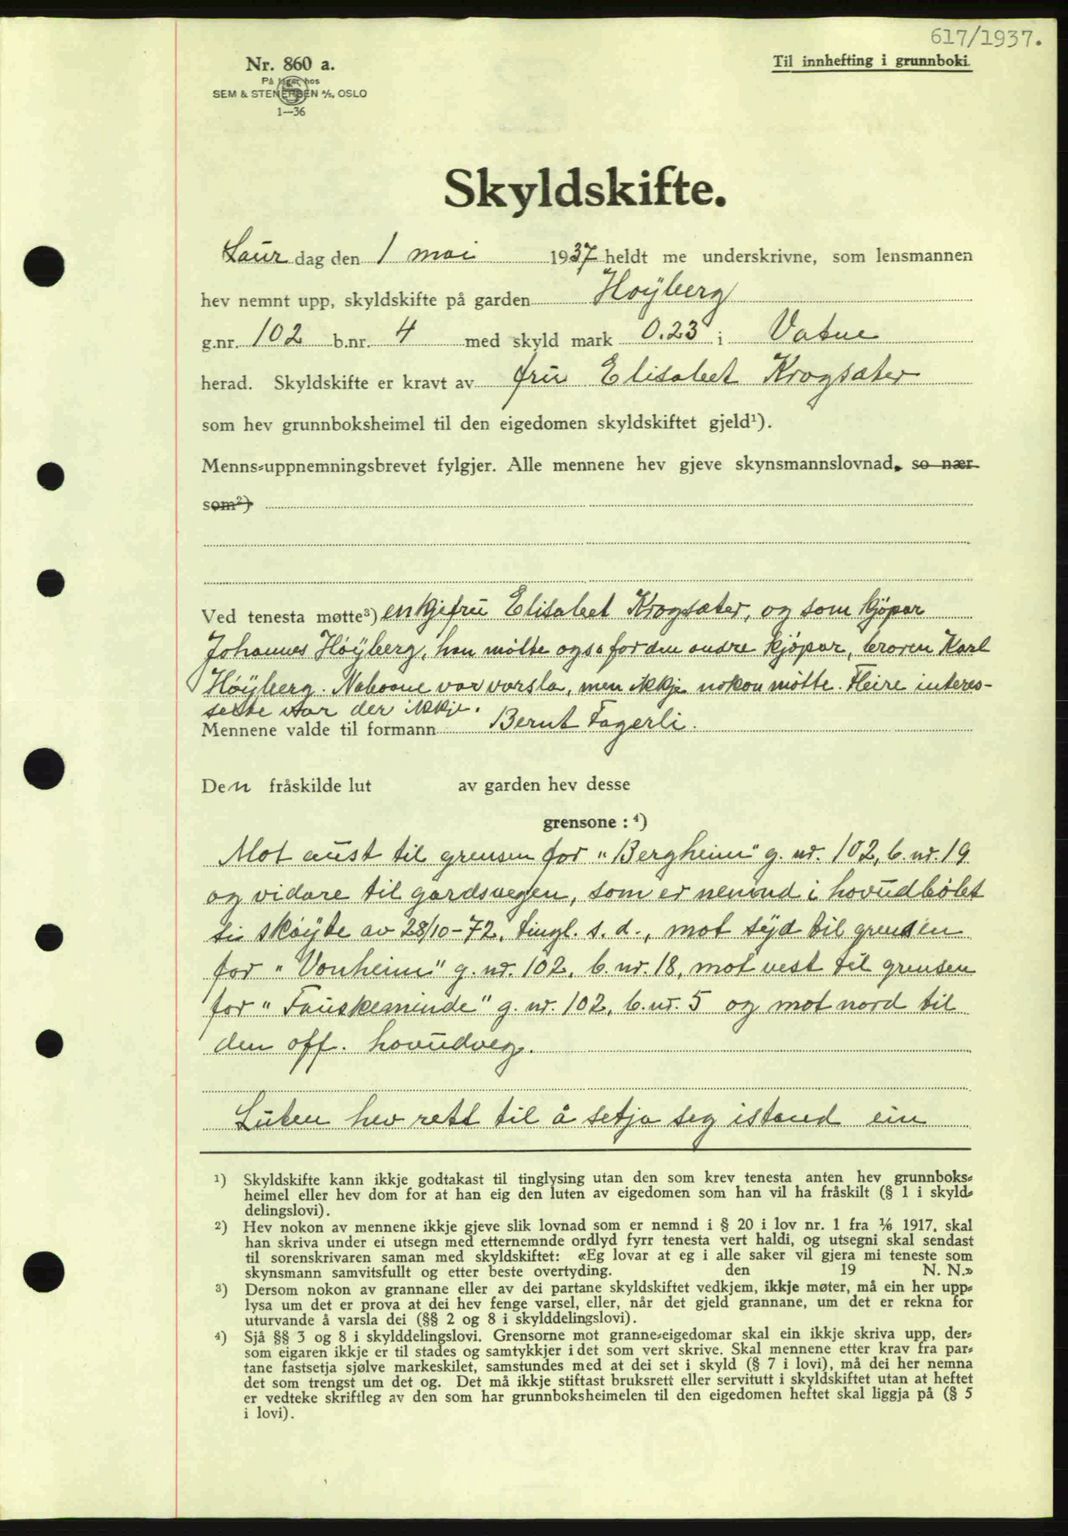 617/1937.
Nr. 860 a.
Til innhefting i grunnboki.
På lager hos
SEM & STENERSEN A/S, OSLO
1—36
Skyldskifte.
Laur dag den 1 mai 1937 heldt me underskrivne, som lensmannen
hev nemnt upp, skyldskifte på garden Høyberg
g.nr. 102 b.nr. 4 med skyld mark 0.23 i Vatne
herad. Skyldskifte er kravt av fru Elisabet Krogsæter
som hev grunnboksheimel til den eigedomen skyldskiftet gjeld¹).
Menns-uppnemningsbrevet fylgjer. Alle mennene hev gjeve skynsmannslovnad. so nær
som²)
Ved tenesta møtte³) enkjefru Elisabet Krogsæter, og som kjøpar
Johannes Høyberg, han møtte også for den andre kjøpar, broren Karl
Høyberg. Naboane var varsla, men ikkje nokon møtte. Fleire interes-
serte var der ikkje.
Mennene valde til formann Bernt Fagerli.
Den fråskilde lut av garden hev desse
grensone : ⁴)
Mot aust til grensen for "Bergheim" g. nr. 102, b. nr. 19
og vidare til gardsvegen, som er nemnd i hovudbølet
si skøyte av 28/10-72, tingl. s. d., mot syd til grensen
for "Vonheim" g. nr. 102, b. nr. 18, mot vest til grensen
for "Fauskeminde" g. nr. 102, b. nr. 5 og mot nord til
den off. hovudveg.
Luten hev rett til å setja seg istand ein
¹) Skyldskifte kann ikkje godtakast til tinglysing utan den som krev tenesta anten hev grunnboks-
heimel eller hev dom for at han eig den luten av eigedomen som han vil ha fråskilt (§ 1 i skyld-
delingslovi).
²) Hev nokon av mennene ikkje gjeve slik lovnad som er nemnd i § 20 i lov nr. 1 fra 1/6 1917, skal
han skriva under ei utsegn med etternemnde ordlyd fyrr tenesta vert haldi, og utsegni skal sendast
til sorenskrivaren saman med skyldskiftet: «Eg lovar at eg i alle saker vil gjera mi teneste som
skynsmann samvitsfullt og etter beste overtyding. den 19 N. N.»
³) Dersom nokon av grannane eller av dei partane skyldskiftet vedkjem, ikkje møter, må ein her upp-
lysa um det er prova at dei hev fenge varsel, eller, når det gjeld grannane, um det er rekna for
uturvande å varsla dei (§§ 2 og 8 i skylddelingslovi).
⁴) Sjå §§ 3 og 8 i skylddelingslovi. Grensorne mot granne-eigedomar skal ein ikkje skriva upp, der-
som eigaren ikkje er til stades og samtykkjer i det som vert skrive. Skal mennene etter krav fra par-
tane fastsetja sjølve markeskilet, samstundes med at dei set i skyld (§ 7 i lovi), må dei her nemna
det som trengst um det og. Det må ikkje stiftast bruksrett eller servitutt i skyldskiftet utan at heftet
er vedteke skriftleg av den som har grunnboksheimelen til den eigedomen heftet skal liggja på (§ 5
i lovi).